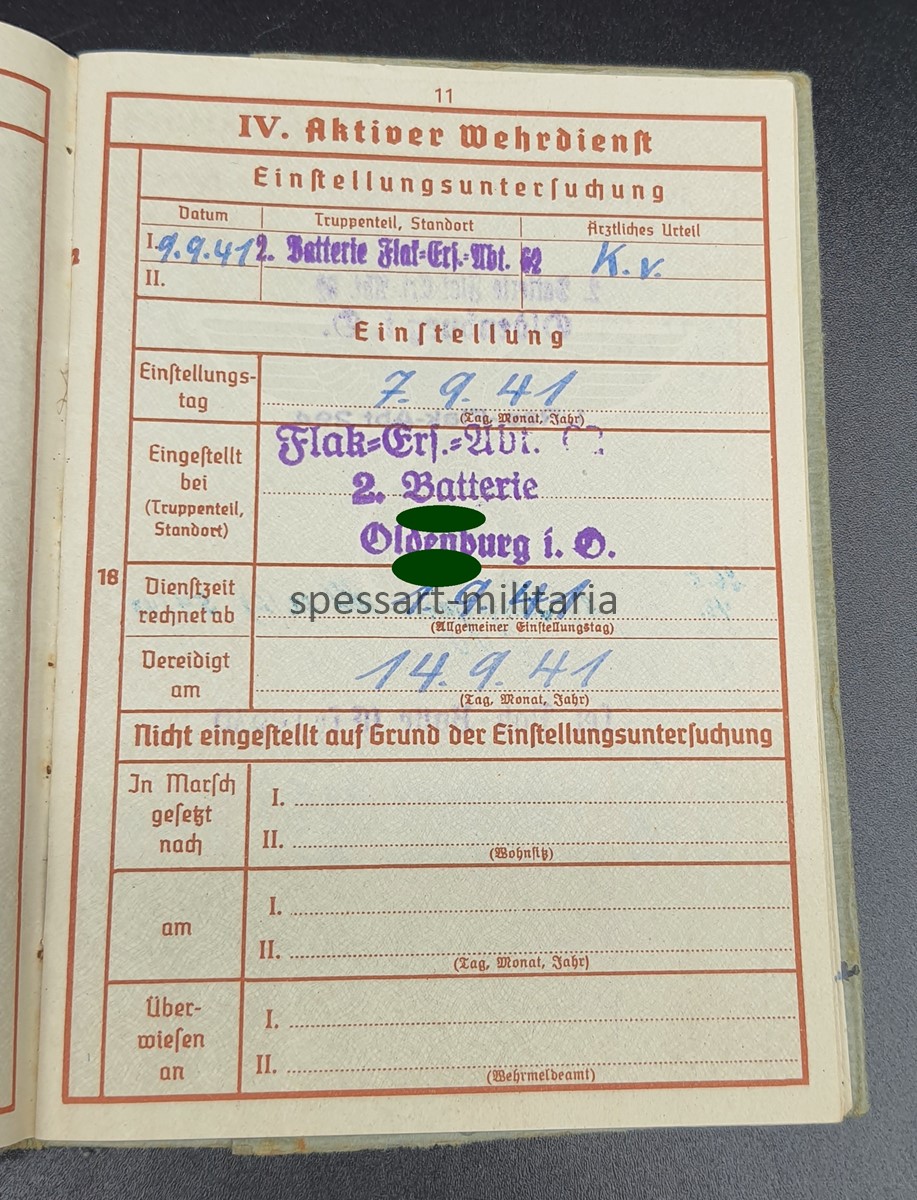 11
IV. Aktiver Wehrdienst
Einstellungsuntersuchung
Datum Truppenteil, Standort Ärztliches Urteil
I. 9.9.41 2. Batterie Flak=Ers.=Abt. 62 K.v.
II.
Einstellung
Einstellungs-
tag
7. 9. 41
(Tag, Monat, Jahr)
Eingestellt
bei
(Truppenteil,
Standort)
Flak=Ers.=Abt.
2. Batterie
Oldenburg i. O.
18
Dienstzeit
rechnet ab
9. 41
(Allgemeiner Einstellungstag)
spessart-militaria
Vereidigt
am
14. 9. 41
(Tag, Monat, Jahr)
Nicht eingestellt auf Grund der Einstellungsuntersuchung
In Marsch
gesetzt
nach
I.
II.
(Wohnsitz)
am
I.
II.
(Tag, Monat, Jahr)
Über-
wiesen
an
I.
II.
(Wehrmeldeamt)